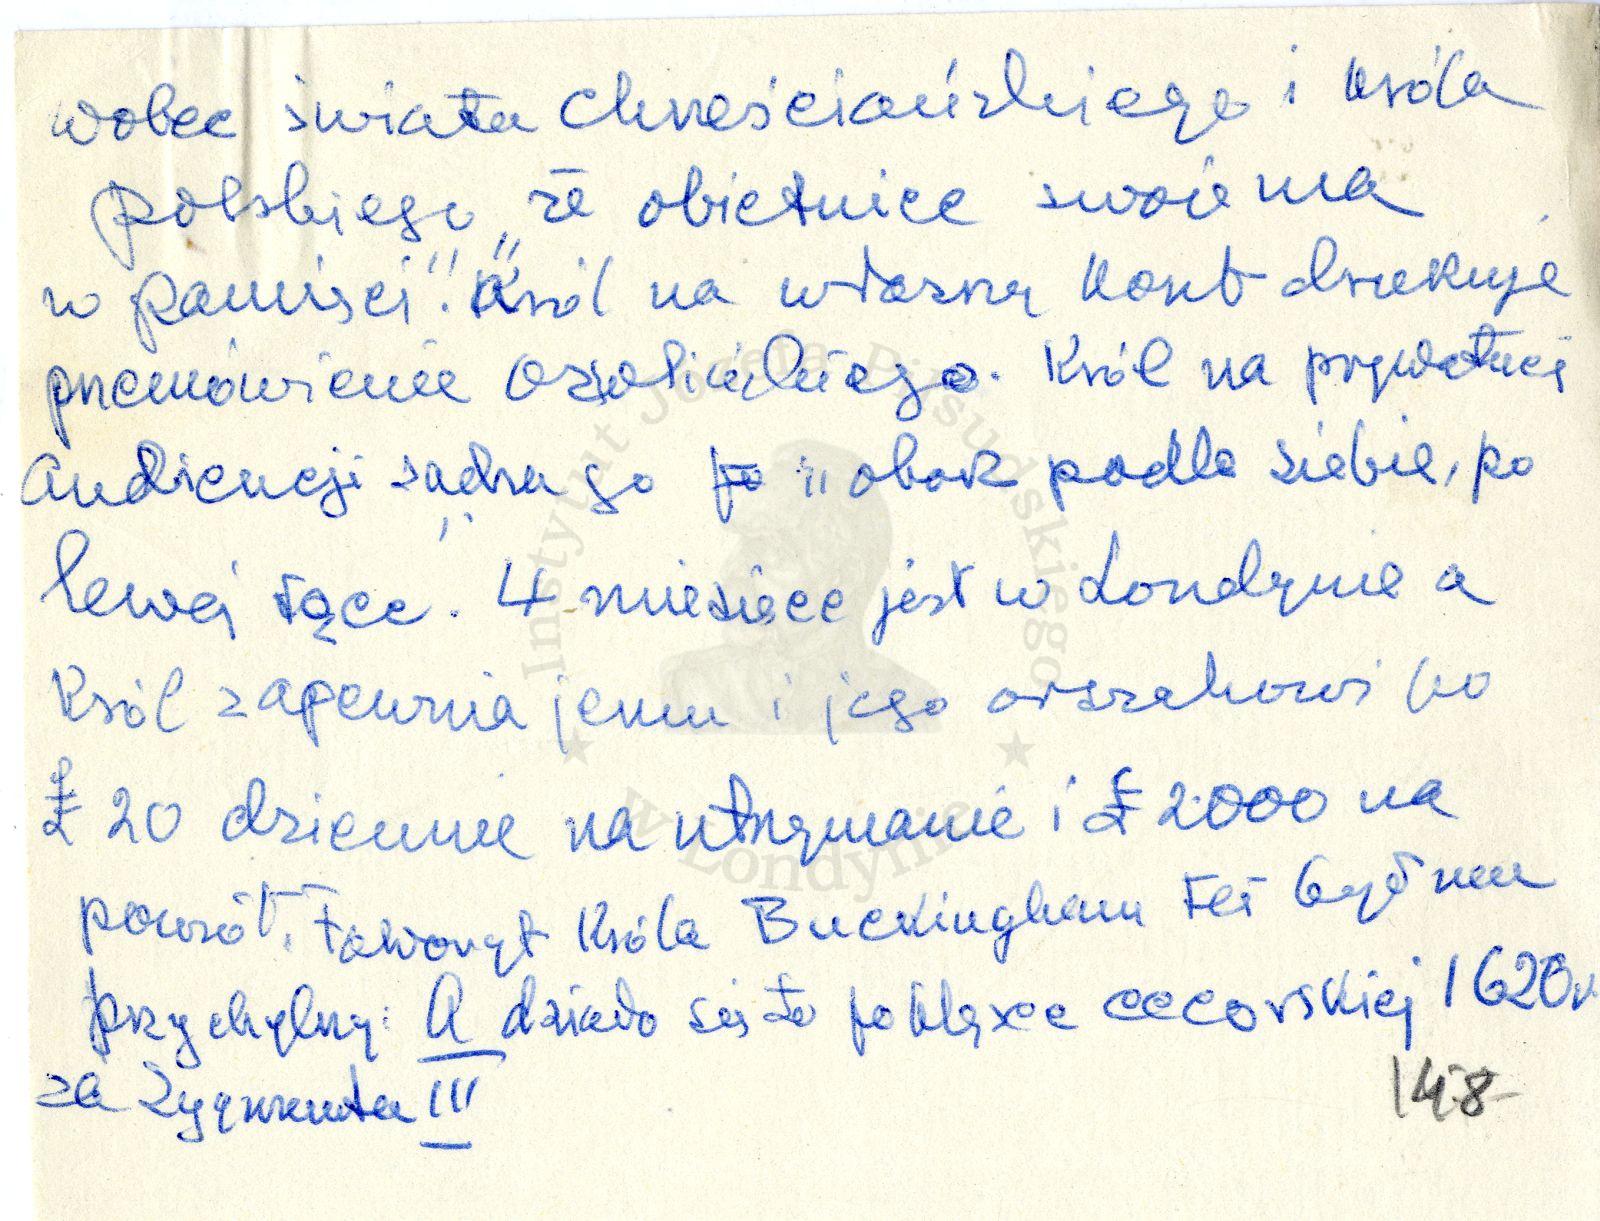 wobec świata chrześciańskiego i Króla
polskiego „że obietnice swoje ma
w pamięci". Król na własny koszt drukuje
przemówienie Ossolińskiego. Król na prywatnej
Audiencji sadza go „obok podle siebie, po
lewej ręce". 4 miesiące jest w Londynie a
Król zapewnia jemu i jego orszakowi po
£ 20 dziennie na utrzymanie i £ 2000 na
powrót. Faworyt Króla Buckingham też był mu
przychylny. A działo się to po klęsce cecorskiej 1620 r
za Zygmunta III
148
Instytut Józefa Piłsudskiego
w Londynie